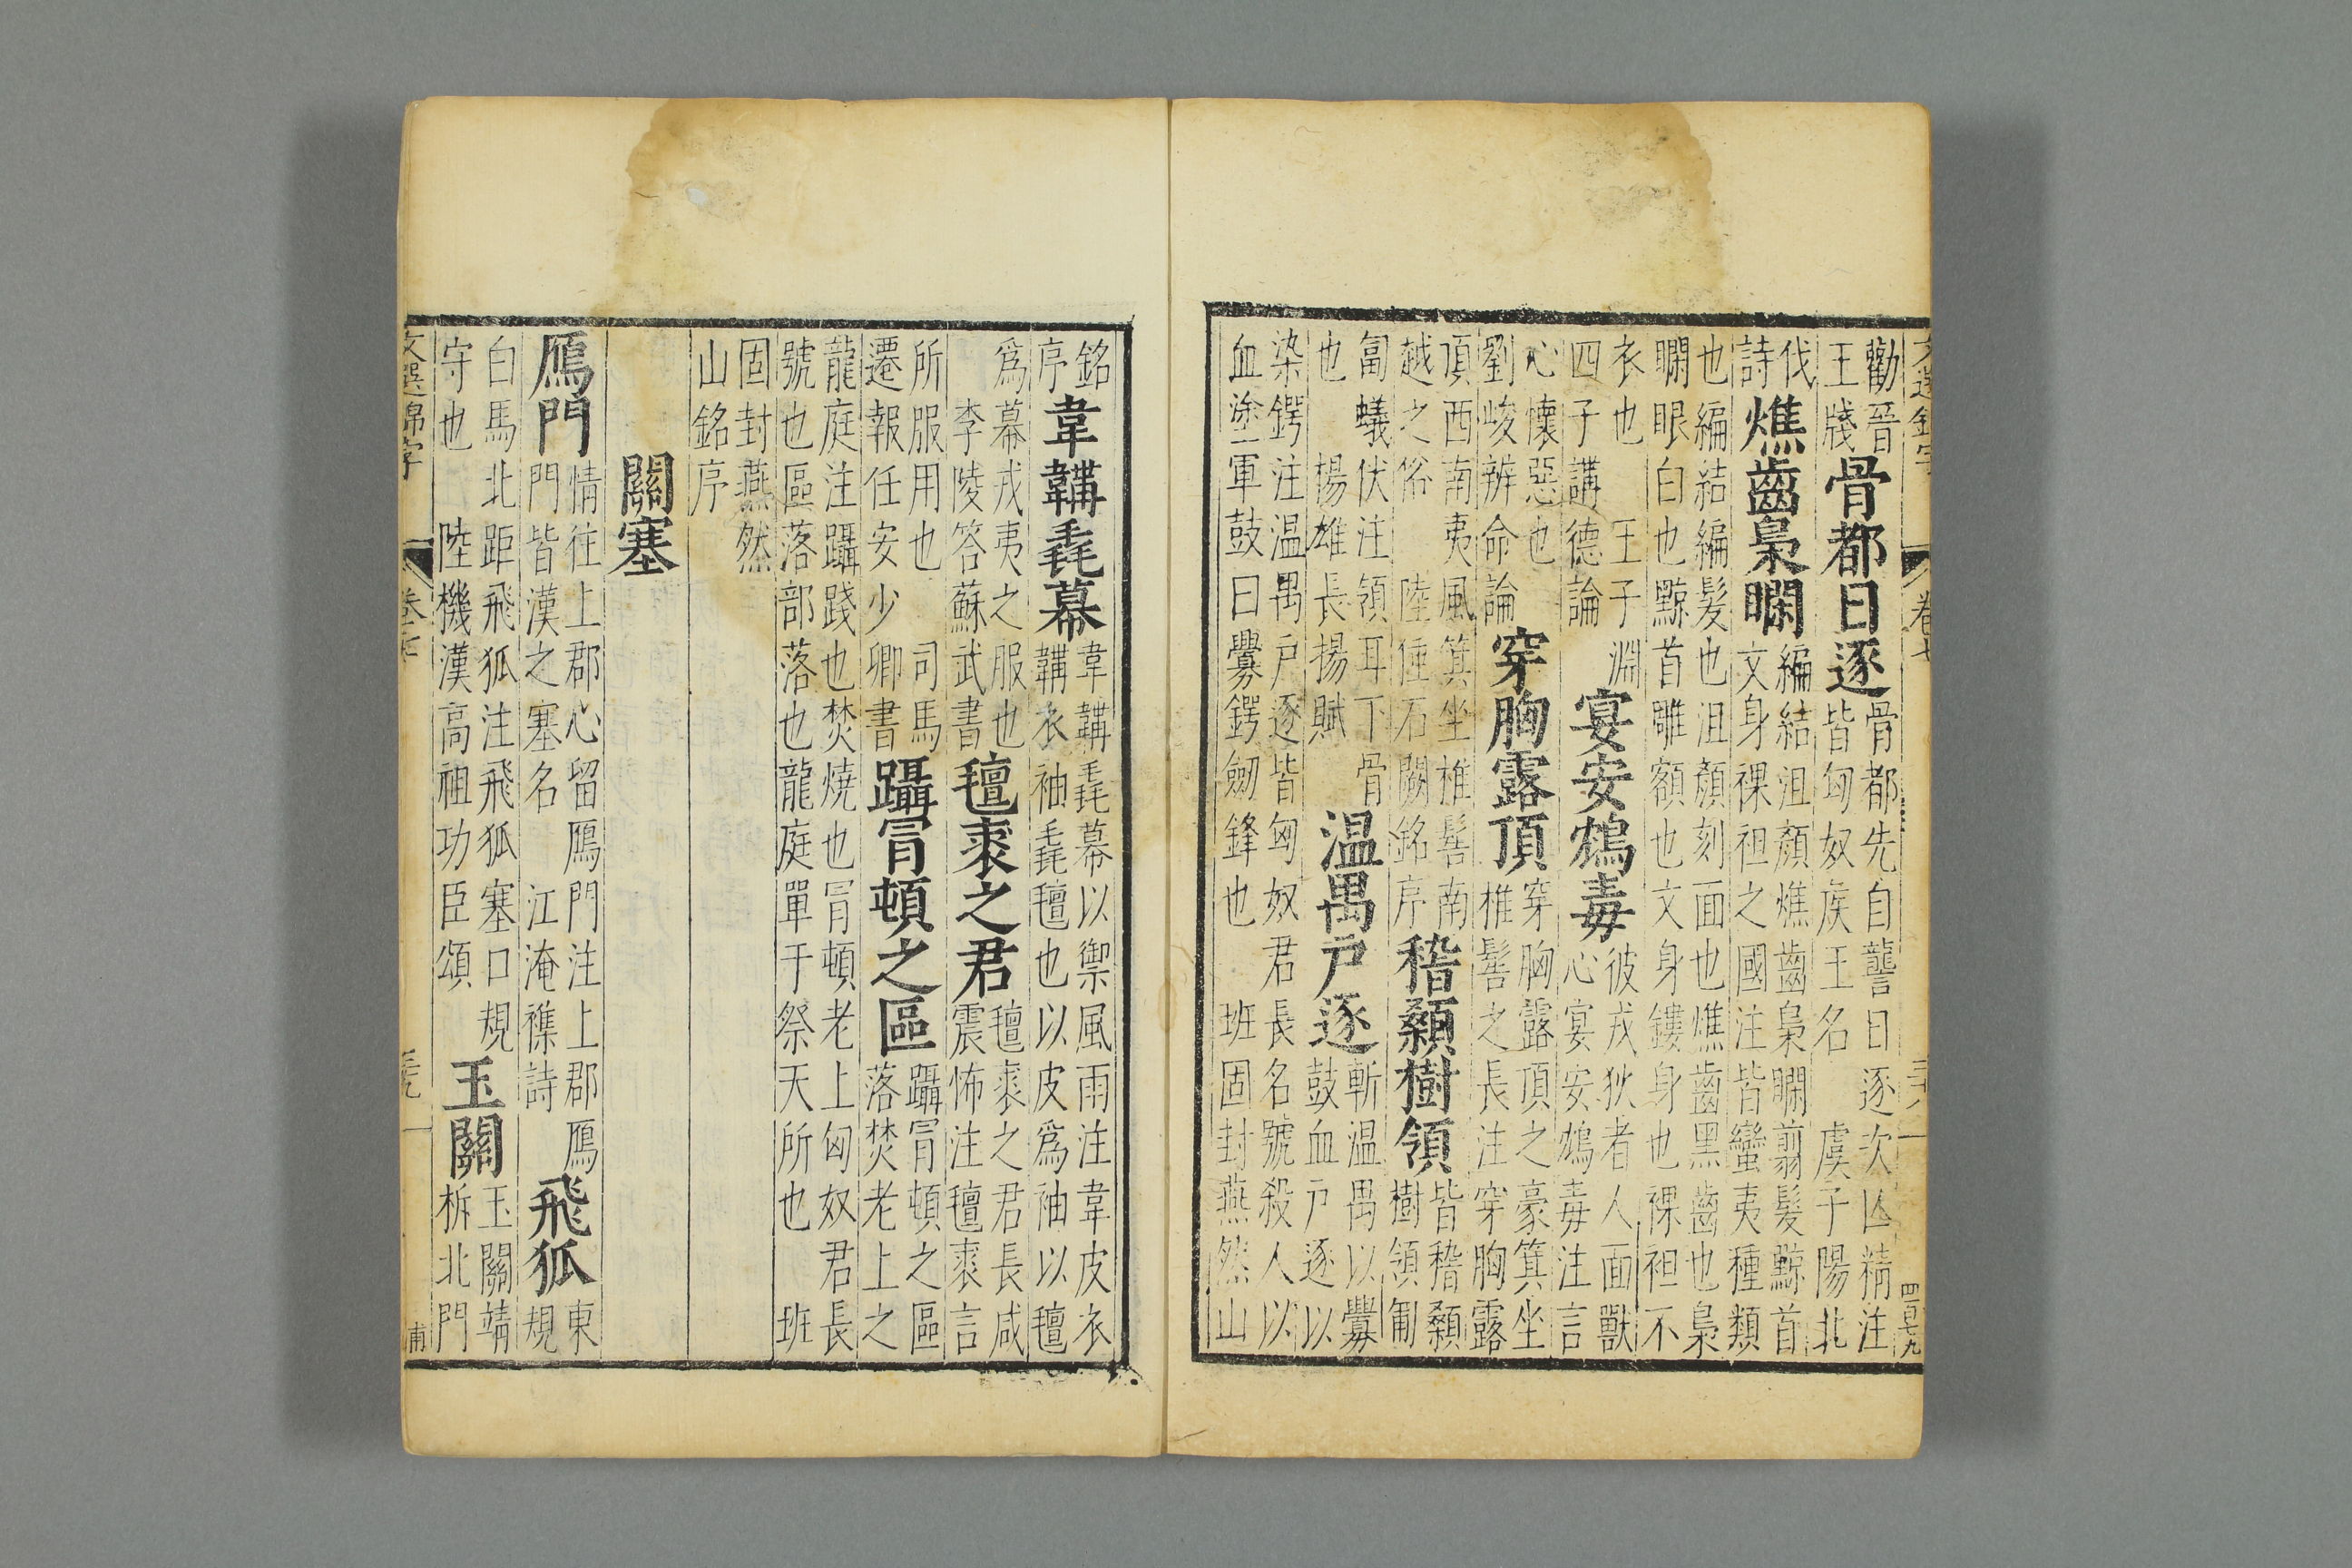 文選錦字 卷七 三十八 四百七九
勸晉
王牋
骨都日逐
骨都先自讋日逐次亾精注
皆匈奴矦王名 虞子陽北
伐
詩
燋齒梟瞯
編結沮顏燋齒梟瞯翦髮黥首
文身裸袒之國注皆蠻夷種類
也編結編髮也沮顏刻面也燋齒黑齒也梟
瞯眼白也黥首雕額也文身鏤身也裸袒不
衣也 王子淵
四子講德論
宴安鴆毒
彼戎狄者人面獸
心宴安鴆毒注言
心懷惡也
劉峻辨命論
穿胸露頂
穿胸露頂之豪箕坐
椎髻之長注穿胸露
頂西南夷風箕坐椎髻南
越之俗 陸倕石闕銘序
稽顙樹頷
皆稽顙
樹頷匍
匐蟻伏注頷耳下骨
也 揚雄長揚賦
温禺尸逐
斬温禺以釁
鼓血尸逐以
染鍔注温禺尸逐皆匈奴君長名號殺人以
血塗軍鼓曰釁鍔劒鋒也 班固封燕然山
銘
序
韋韝毳幕
韋韝毳幕以禦風雨注韋皮衣
韝衣袖毳氊也以皮爲袖以氊
爲幕戎夷之服也
李陵答蘇武書
氊裘之君
氊裘之君長咸
震怖注氊裘言
所服用也 司馬
遷報任安少卿書
躡冐頓之區
躡冐頓之區
落焚老上之
龍庭注躡踐也焚燒也冐頓老上匈奴君長
號也區落部落也龍庭單于祭天所也 班
固封燕然
山銘序
關塞
鴈門
情往上郡心留鴈門注上郡鴈
門皆漢之塞名 江淹襍詩
飛狐
東
規
白馬北距飛狐注飛狐塞口規
守也 陸機漢高祖功臣頌
玉關
玉關靖
柝北門
文選錦字 卷七 甫